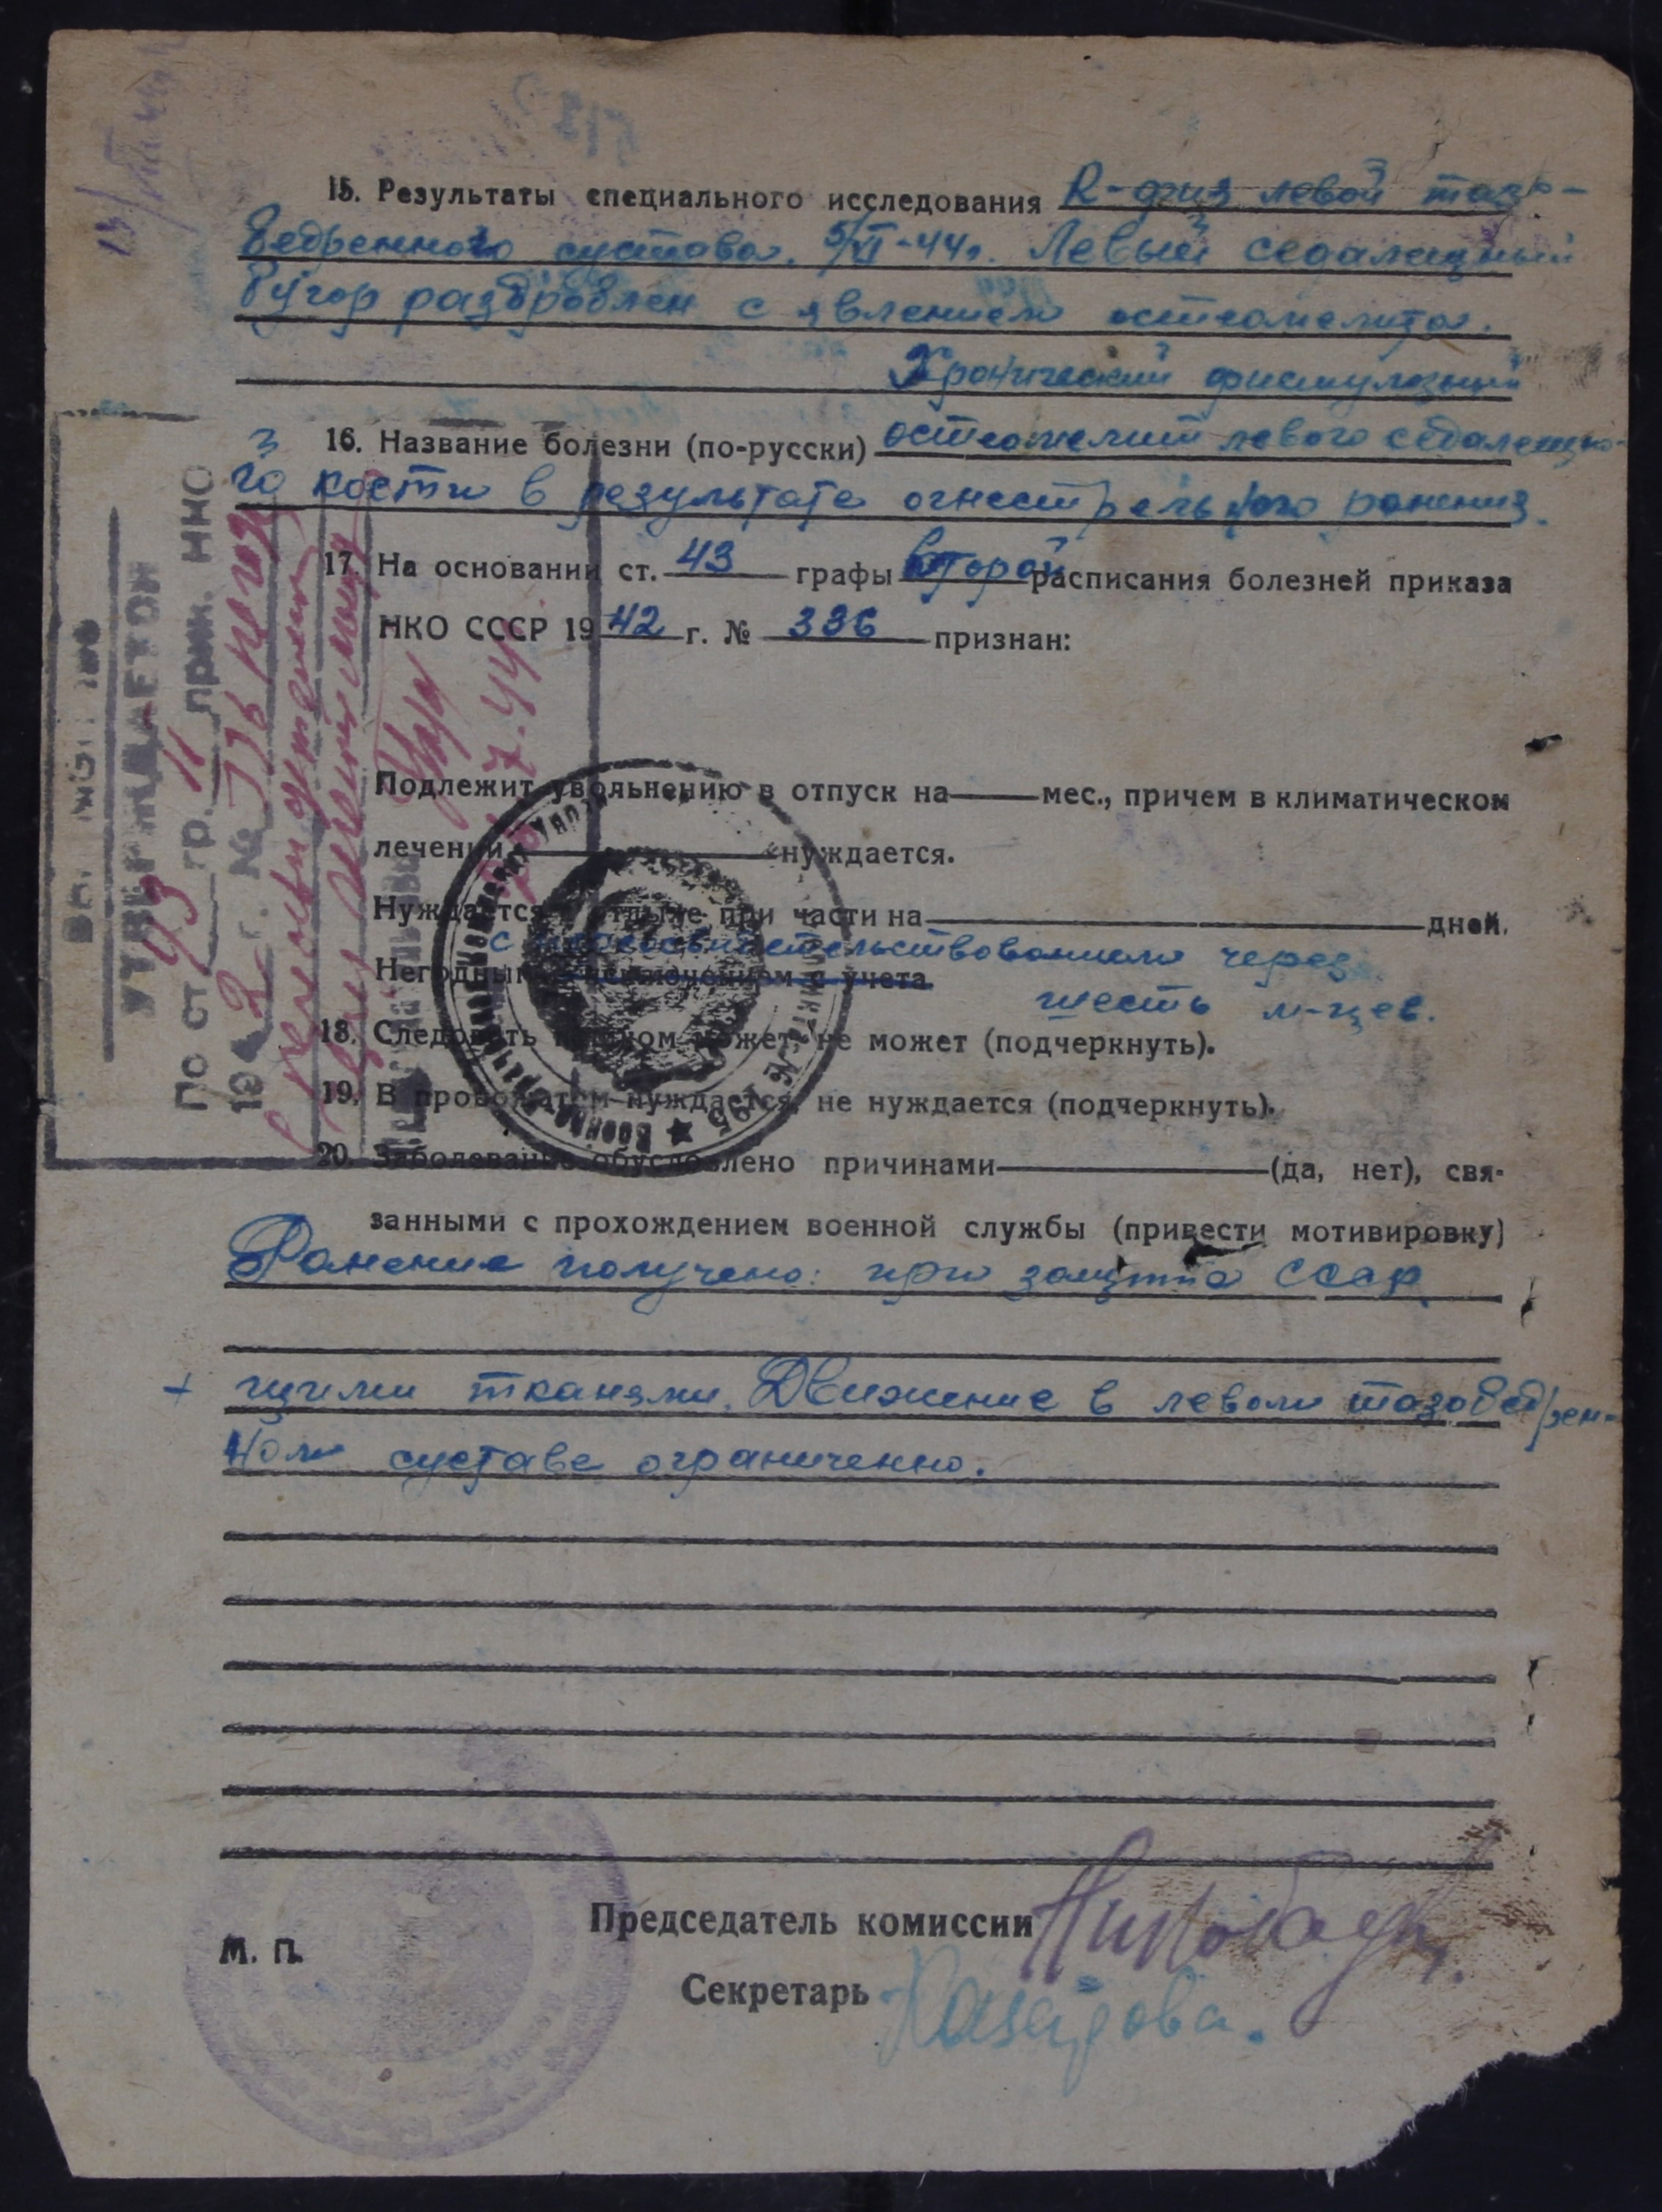 15. Результаты специального исследования R-физ левой тазо-
бедренного сустава. 5/VI-44г. Левый седалищный
бугор раздроблен с явлением остеомелита.
Хронический фистулезный
16. Название болезни (по-русски) остеомелит левого седалищно-
го кости в результате огнестрельного ранения.
17. На основании ст. 43 графы второй расписания болезней приказа
НКО СССР 1942 г. № 336 признан:
Подлежит увольнению в отпуск на мес., причем в климатическом
лечении нуждается.
Нуждается в отдыхе при части на дней.
с переосвидетельствованием через
Негодным с исключением с учета
шесть м-цев.
18. Следовать пешком может, не может (подчеркнуть).
19. В провожатом нуждается, не нуждается (подчеркнуть).
20. Заболевание обусловлено причинами (да, нет), свя-
занными с прохождением военной службы (привести мотивировку)
Ранение получено: при защите СССР.
+ щими тканями. Движение в левом тазобедрен-
ном суставе ограниченно.
Председатель комиссии
М. П.
Секретарь
УТВЕРЖДАЕТСЯ
По ст. 43 гр. II прик. НКО
1942 г. № 336